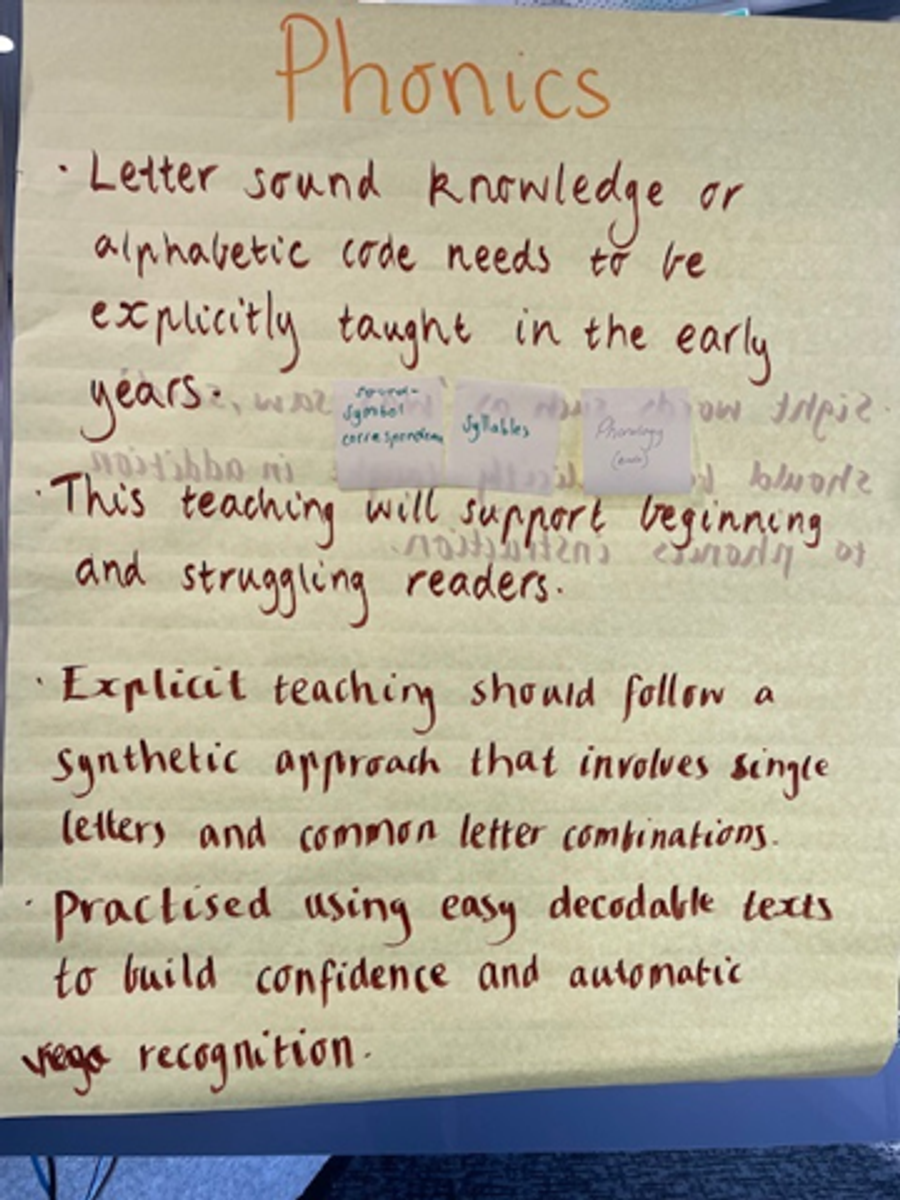 Phonics
· Letter sound knowledge or
alphabetic code needs to be
explicitly taught in the early
years.
sound-
symbol
correspondence
Syllables
Phonology
· This teaching will support beginning
and struggling readers.
· Explicit teaching should follow a
synthetic approach that involves single
letters and common letter combinations.
· Practised using easy decodable texts
to build confidence and automatic
recognition.
· Sight words such as saw,
should in addition
to phonics instruction.